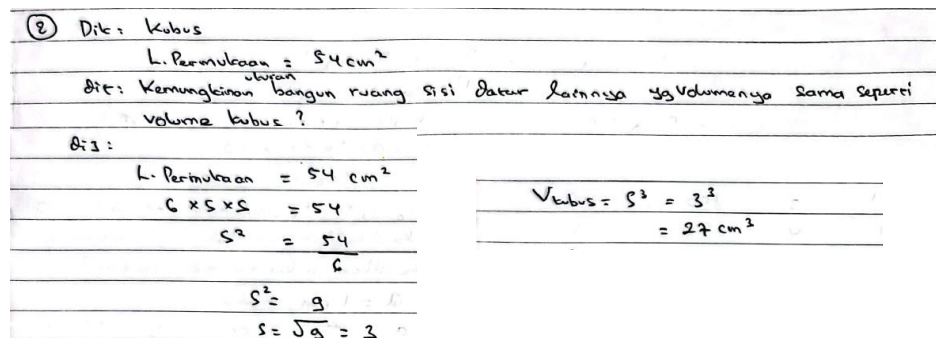 ② Dik : Kubus
L. Permukaan = 54 cm²
ukuran
dit : Kemungkinan bangun ruang sisi datar lainnya yg volumenya sama seperti
volume kubus ?
dij :
L. Permukaan = 54 cm²
6 × s × s = 54
s² = 54/6
s² = 9
s = √9 = 3
V kubus = s³ = 3³
= 27 cm³